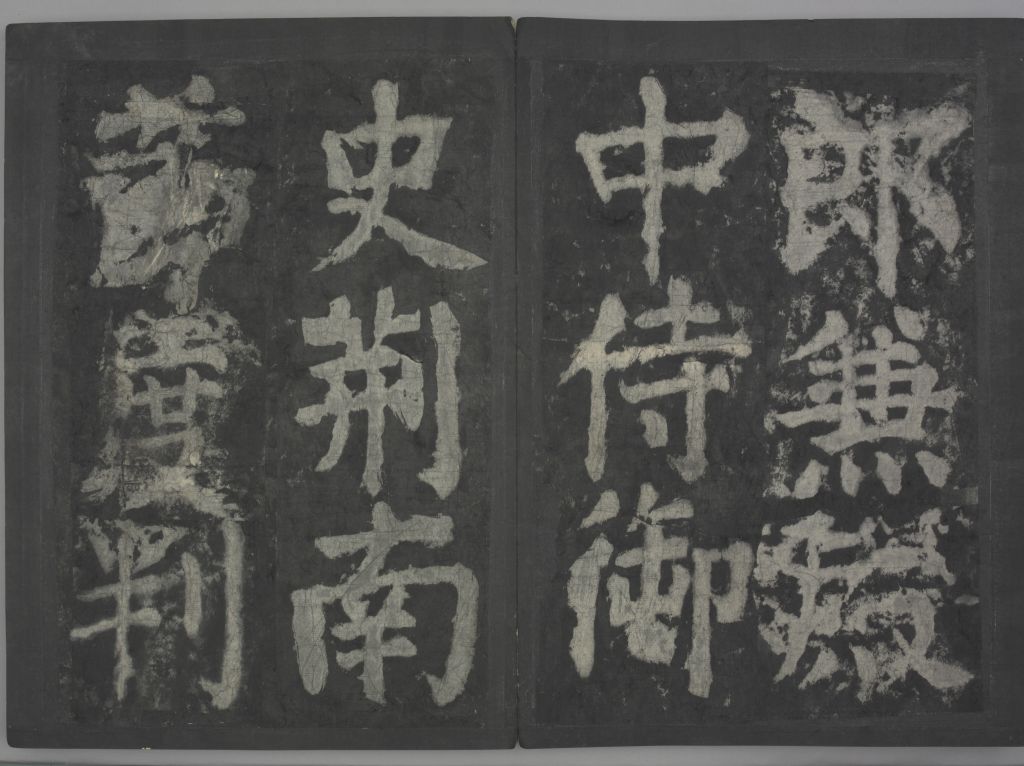 郎兼殿
中侍御
史荊南
節度判